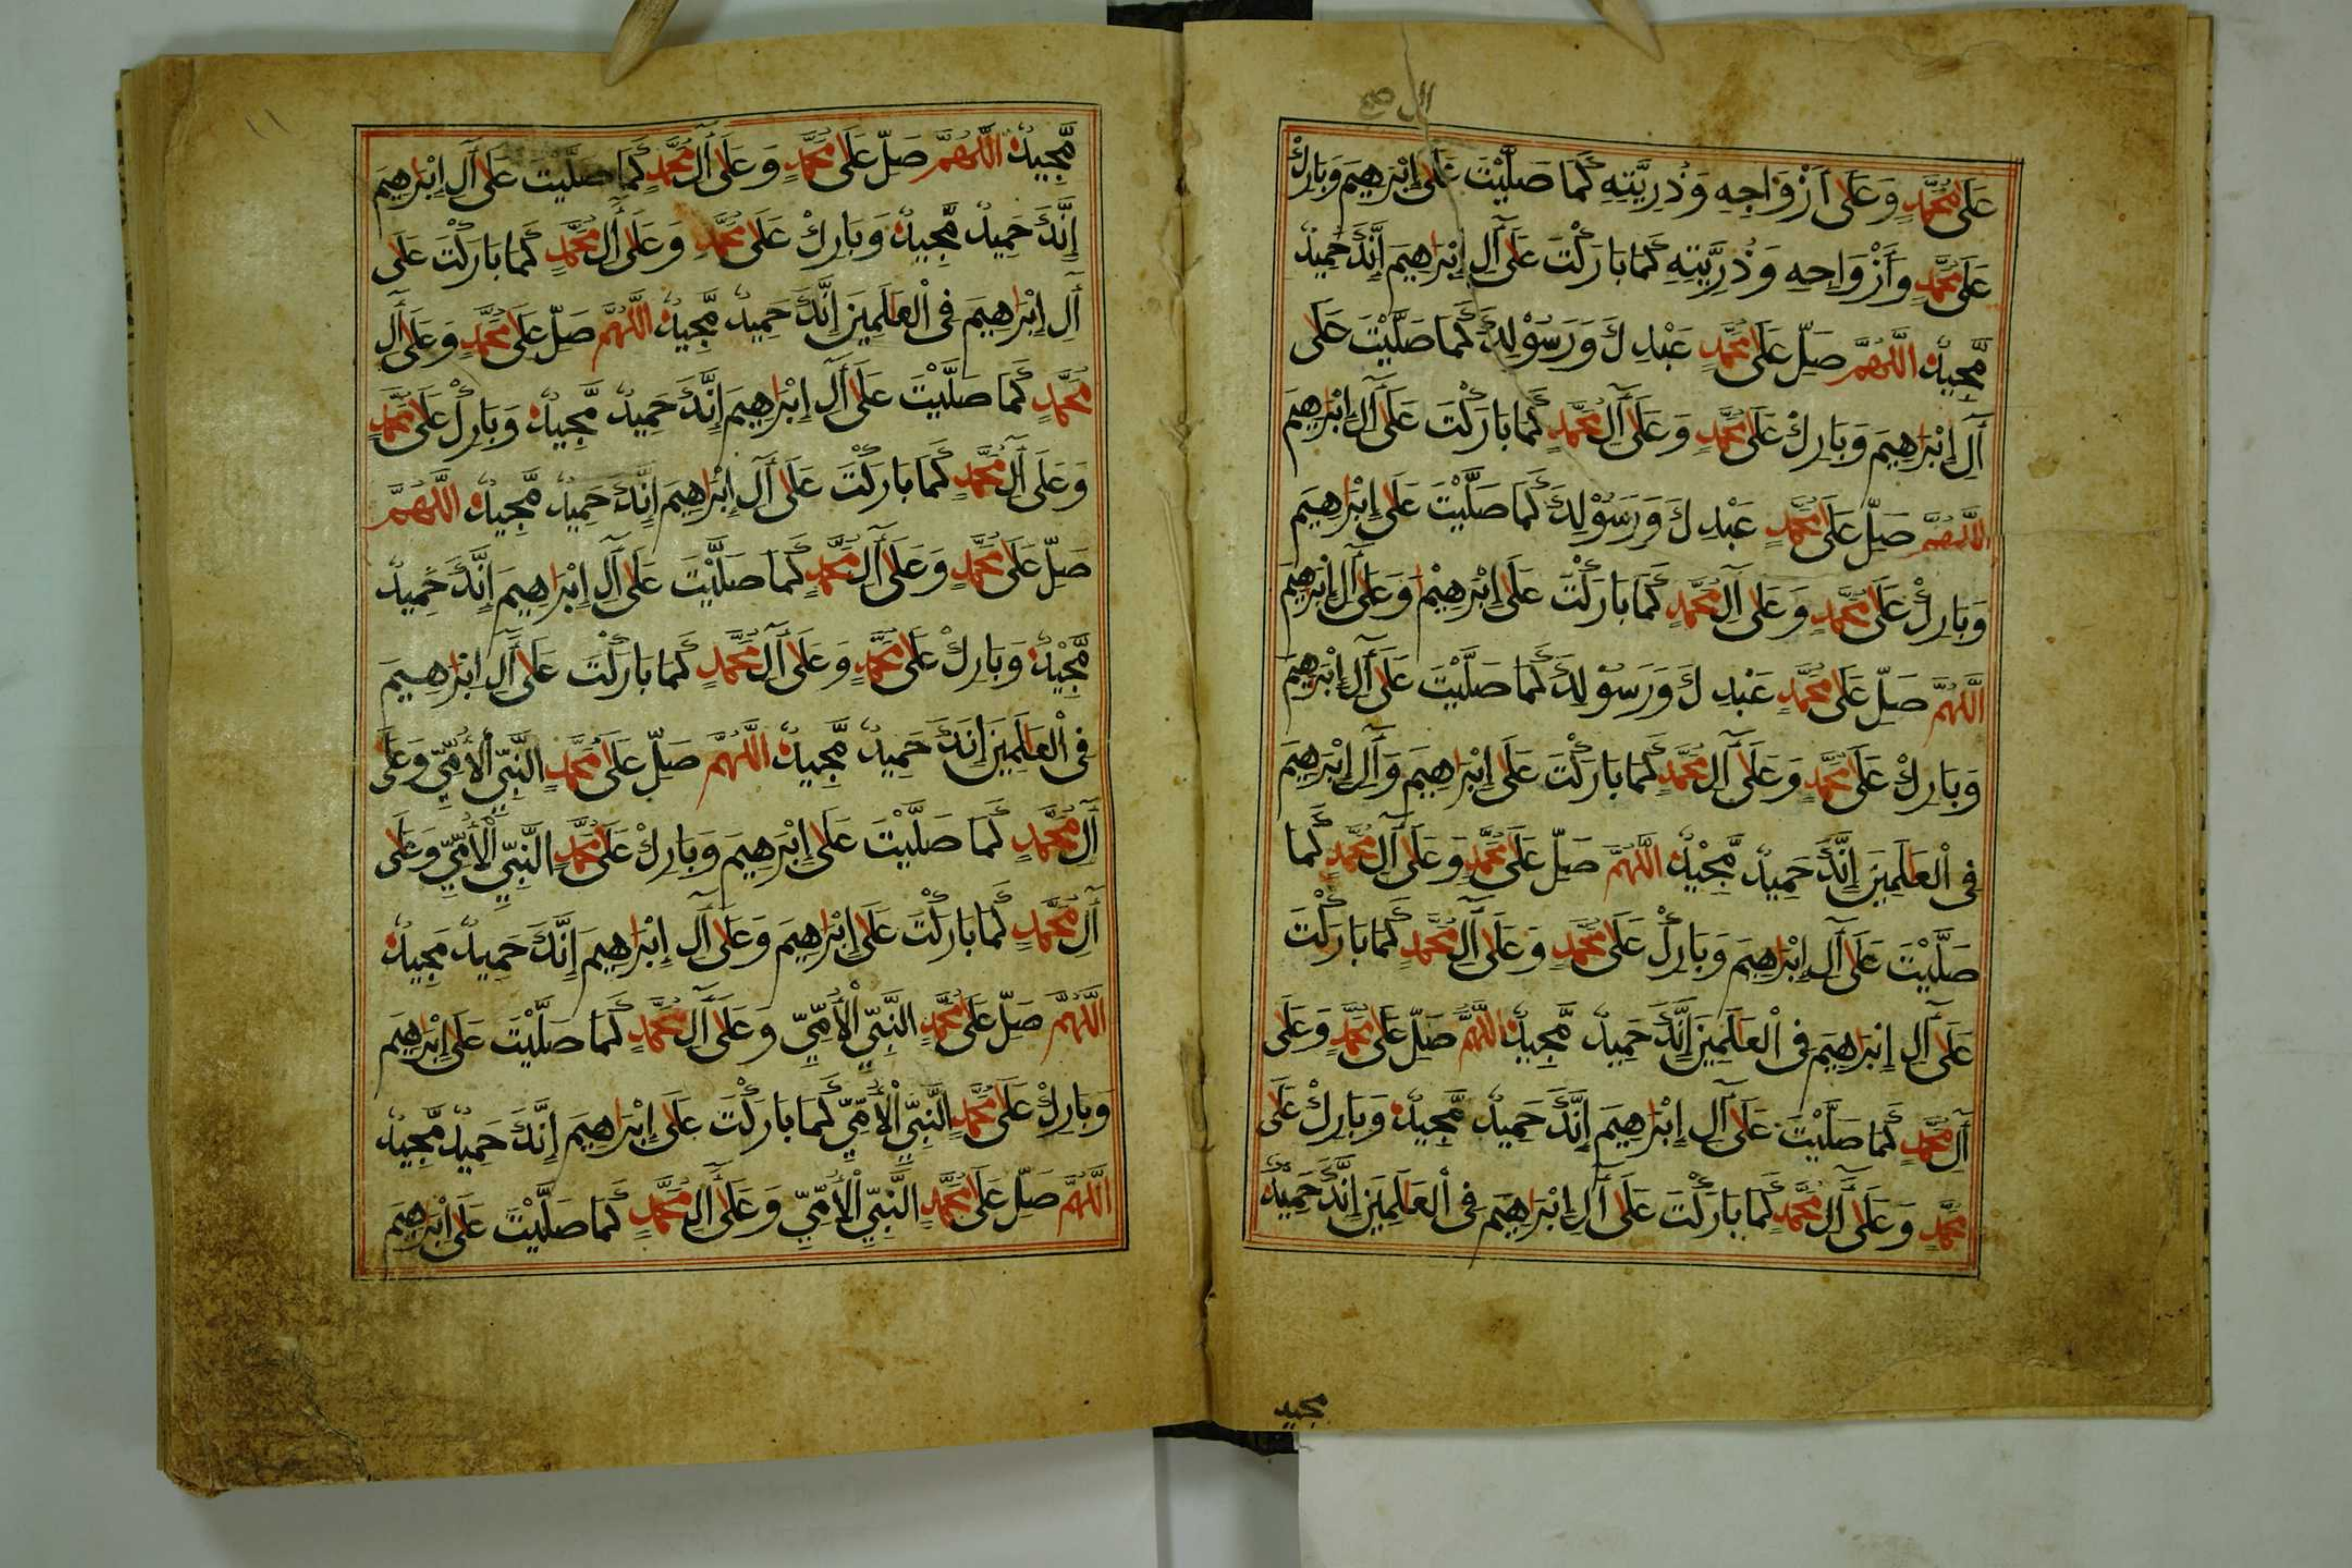 ال صح
عَلَى مُحَمَّدٍ وَعَلَى أَزْوَاجِهِ وَذُرِيَّتِهِ كَمَا صَلَّيْتَ عَلَى إِبْرَهِيمَ وَبَارِكْ
عَلَى مُحَمَّدٍ وَأَزْوَاجِهِ وَذُرِّيَّتِهِ كَمَا بَارَكْتَ عَلَى آلِ إِبْرَاهِيمَ إِنَّكَ حَمِيدٌ
مَّجِيدٌ اللَّهُمَّ صَلِّ عَلَى مُحَمَّدٍ عَبْدِكَ وَرَسُوْلِكَ كَمَا صَلَّيْتَ عَلَى
آلِ إِبْرَاهِيمَ وَبَارِكْ عَلَى مُحَمَّدٍ وَعَلَى آلِ مُحَمَّدٍ كَمَا بَارَكْتَ عَلَى آلِ إِبْرَاهِيمَ
اللَّهُمَّ صَلِّ عَلَى مُحَمَّدٍ عَبْدِكَ وَرَسُوْلِكَ كَمَا صَلَّيْتَ عَلَى إِبْرَاهِيمَ
وَبَارِكْ عَلَى مُحَمَّدٍ وَعَلَى آلِ مُحَمَّدٍ كَمَا بَارَكْتَ عَلَى إِبْرَاهِيْمَ وَعَلَى آلِ إِبْرَاهِيمَ
اللَّهُمَّ صَلِّ عَلَى مُحَمَّدٍ عَبْدِكَ وَرَسُوْلِكَ كَمَا صَلَّيْتَ عَلَى آلِ إِبْرَاهِيمَ
وَبَارِكْ عَلَى مُحَمَّدٍ وَعَلَى آلِ مُحَمَّدٍ كَمَا بَارَكْتَ عَلَى إِبْرَاهِيمَ وَآلِ إِبْرَاهِيمَ
فِى الْعَالَمِينَ إِنَّكَ حَمِيدٌ مَّجِيْدٌ اللَّهُمَّ صَلِّ عَلَى مُحَمَّدٍ وَعَلَى آلِ مُحَمَّدٍ كَمَا
صَلَّيْتَ عَلَى آلِ إِبْرَاهِيمَ وَبَارِكْ عَلَى مُحَمَّدٍ وَعَلَى آلِ مُحَمَّدٍ كَمَا بَارَكْتَ
عَلَى آلِ إِبْرَاهِيمَ فِى الْعَالَمِينَ إِنَّكَ حَمِيدٌ مَّجِيدٌ اللَّهُمَّ صَلِّ عَلَى مُحَمَّدٍ وَعَلَى
آلِ مُحَمَّدٍ كَمَا صَلَّيْتَ عَلَى آلِ إِبْرَاهِيمَ إِنَّكَ حَمِيدٌ مَّجِيدٌ وَبَارِكْ عَلَى
مُحَمَّدٍ وَعَلَى آلِ مُحَمَّدٍ كَمَا بَارَكْتَ عَلَى آلِ إِبْرَاهِيمَ فِى الْعَالَمِينَ إِنَّكَ حَمِيدٌ
مجيد
١١
مَّجِيدٌ اللَّهُمَّ صَلِّ عَلَى مُحَمَّدٍ وَعَلَى آلِ مُحَمَّدٍ كَمَا صَلَّيْتَ عَلَى آلِ إِبْرَاهِيمَ
إِنَّكَ حَمِيدٌ مَّجِيدٌ وَبَارِكْ عَلَى مُحَمَّدٍ وَعَلَى آلِ مُحَمَّدٍ كَمَا بَارَكْتَ عَلَى
آلِ إِبْرَاهِيمَ فِى الْعَالَمِينَ إِنَّكَ حَمِيدٌ مَّجِيدٌ اللَّهُمَّ صَلِّ عَلَى مُحَمَّدٍ وَعَلَى آلِ
مُحَمَّدٍ كَمَا صَلَّيْتَ عَلَى آلِ إِبْرَاهِيمَ إِنَّكَ حَمِيدٌ مَّجِيدٌ وَبَارِكْ عَلَى مُحَمَّدٍ
وَعَلَى آلِ مُحَمَّدٍ كَمَا بَارَكْتَ عَلَى آلِ إِبْرَاهِيمَ إِنَّكَ حَمِيدٌ مَّجِيدٌ اللَّهُمَّ
صَلِّ عَلَى مُحَمَّدٍ وَعَلَى آلِ مُحَمَّدٍ كَمَا صَلَّيْتَ عَلَى آلِ إِبْرَاهِيمَ إِنَّكَ حَمِيدٌ
مَّجِيْدٌ وَبَارِكْ عَلَى مُحَمَّدٍ وَعَلَى آلِ مُحَمَّدٍ كَمَا بَارَكْتَ عَلَى آلِ إِبْرَاهِيمَ
فِى الْعَالَمِينَ إِنَّكَ حَمِيدٌ مَّجِيدٌ اللَّهُمَّ صَلِّ عَلَى مُحَمَّدٍ النَّبِيِّ الْأُمِّيِّ وَعَلَى
آلِ مُحَمَّدٍ كَمَا صَلَّيْتَ عَلَى إِبْرَاهِيمَ وَبَارِكْ عَلَى مُحَمَّدٍ النَّبِيِّ الْأُمِّيِّ وَعَلَى
آلِ مُحَمَّدٍ كَمَا بَارَكْتَ عَلَى إِبْرَاهِيمَ وَعَلَى آلِ إِبْرَاهِيمَ إِنَّكَ حَمِيدٌ مَجِيدٌ
اللَّهُمَّ صَلِّ عَلَى مُحَمَّدٍ النَّبِيِّ الْأُمِّيِّ وَعَلَى آلِ مُحَمَّدٍ كَمَا صَلَّيْتَ عَلَى إِبْرَاهِيمَ
وَبَارِكْ عَلَى مُحَمَّدٍ النَّبِيِّ الْأُمِّيِّ كَمَا بَارَكْتَ عَلَى إِبْرَاهِيمَ إِنَّكَ حَمِيدٌ مَّجِيدٌ
اللَّهُمَّ صَلِّ عَلَى مُحَمَّدٍ النَّبِيِّ الْأُمِّيِّ وَعَلَى آلِ مُحَمَّدٍ كَمَا صَلَّيْتَ عَلَى إِبْرَاهِيمَ